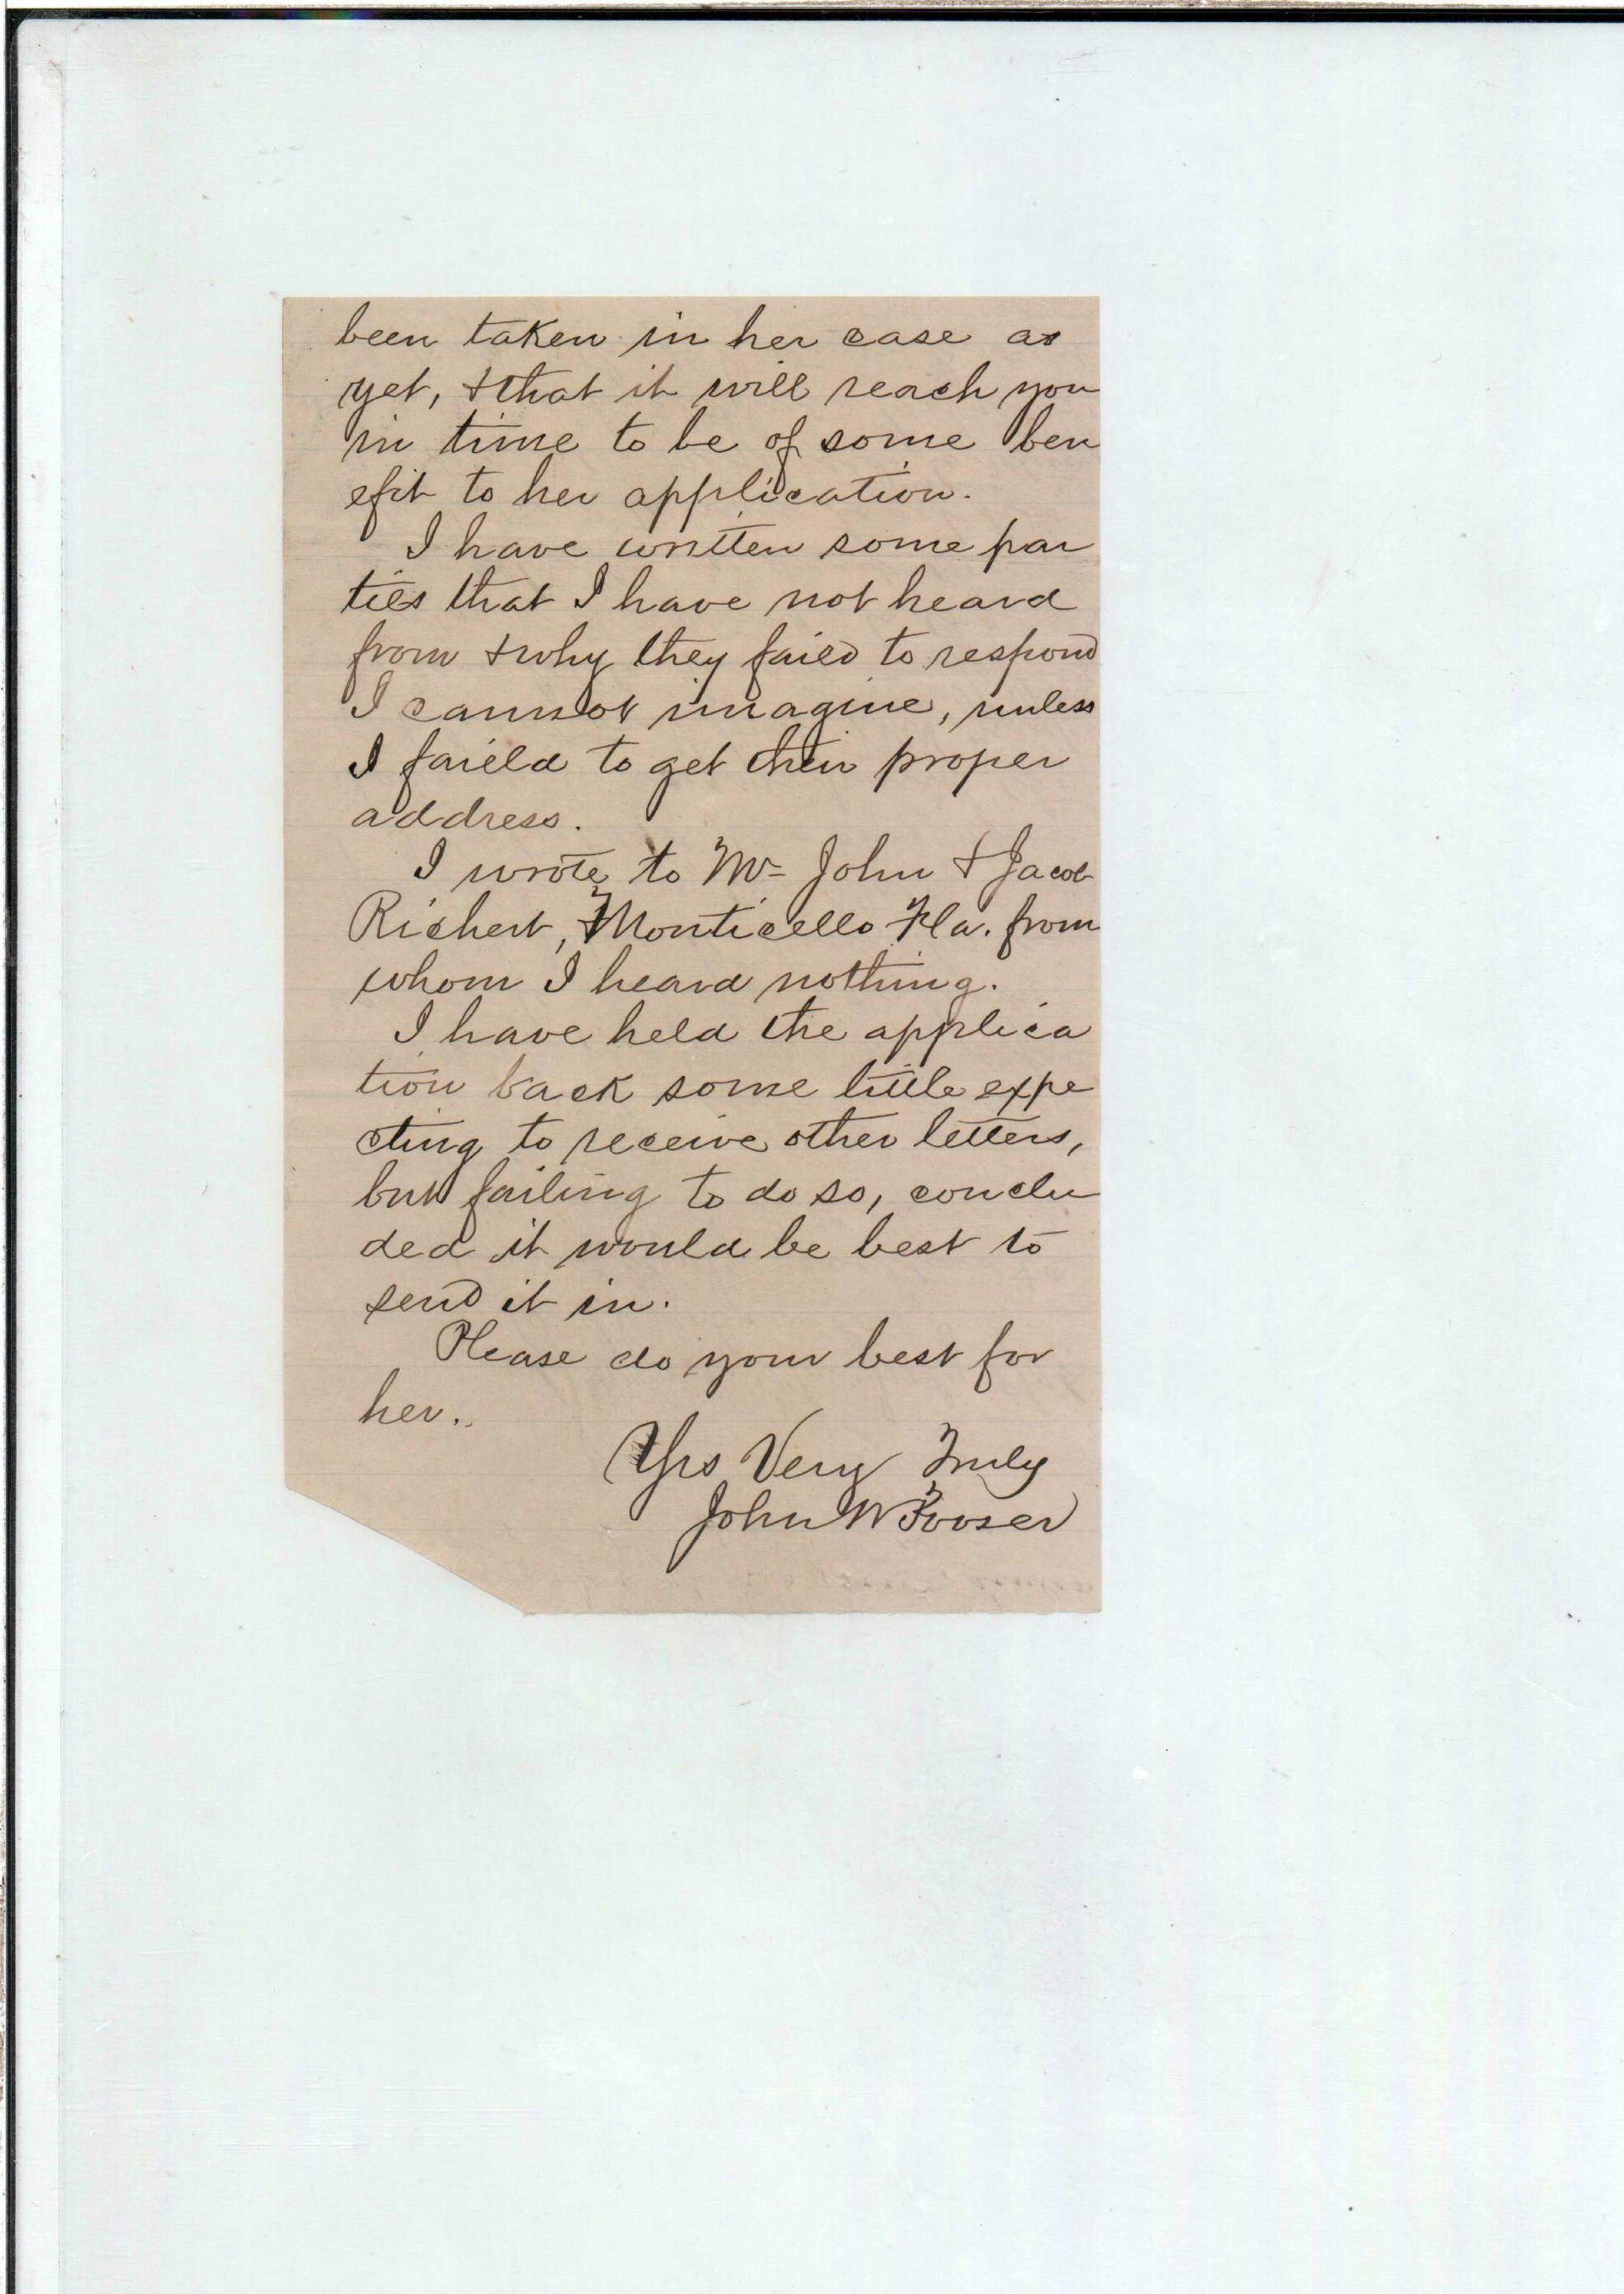 been taken in her case as
yet, & that it will reach you
in time to be of some ben
efit to her application.
I have written some par
ties that I have not heard
from & why they failed to respond
I cannot imagine, unless
I faield to get their proper
address.
I wrote to Mr John & Jacob
Richert, Monticello Fla. from
whom I heard nothing.
I have held the applica
tion back some little expe
cting to receive other letters,
but failing to do so, conclu
ded it would be best to
send it in.
Please do your best for
her.
Yrs Very Truly
John W